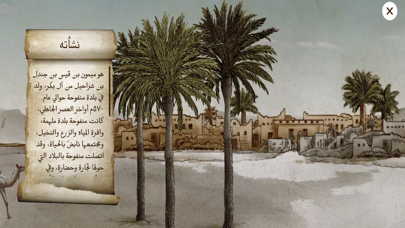 نشأته
هو ميمون بن قيس بن جندل
بن شراحيل من آل بكر، ولد
في بلدة منفوحة حوالي عام
٥٧٠م أواخر العصر الجاهلي،
كانت منفوحة بلدة ملهمة،
وافرة المياه والزرع والنخيل،
ومجتمعها نابض بالحياة، وقد
اتصلت منفوحة بالبلاد التي
حولها تجارة وحضارة، وفي
X